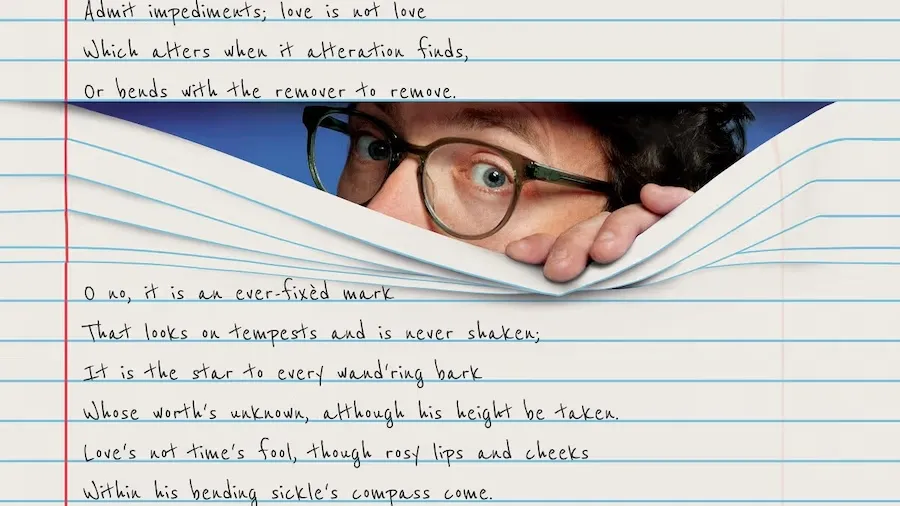 Admit impediments; love is not love
Which alters when it alteration finds,
Or bends with the remover to remove.
O no, it is an ever-fixèd mark
That looks on tempests and is never shaken;
It is the star to every wand'ring bark
Whose worth's unknown, although his height be taken.
Love's not time's fool, though rosy lips and cheeks
Within his bending sickle's compass come.